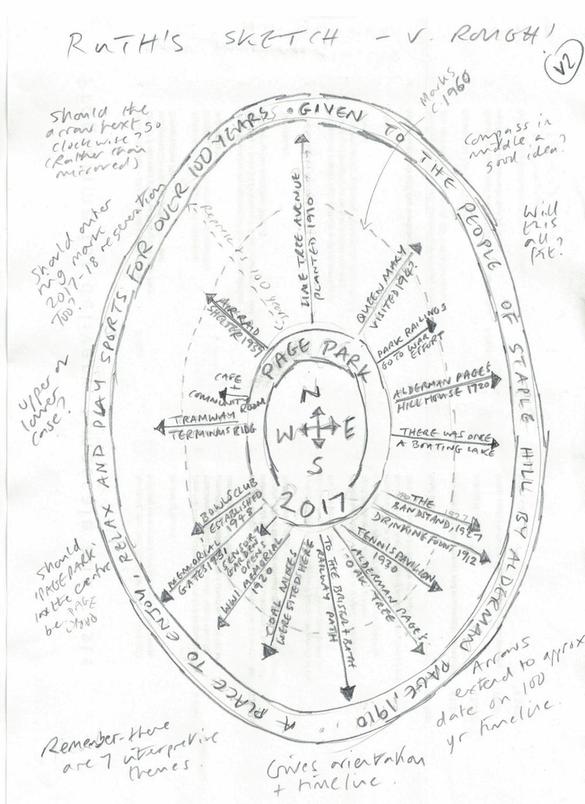 RUTH'S SKETCH - V. ROUGH!
V2
Should the
arrow text go
clockwise?
(Rather than
mirrored)
Marks
c1960
Compass in
middle a
good idea?
Will
this
all
fit?
Should outer
ring mark
2017-18 restoration
too?
upper or
lower
case?
Should
'PAGE PARK'
in the centre
be
Remember there
are 7 interpretive
themes.
Gives orientation
+ timeline.
Arrows
extend to approx
date on 100
yr timeline.
GIVEN TO THE PEOPLE OF STAPLE HILL BY ALDERMAN PAGE, 1910.
A PLACE TO ENJOY, RELAX AND PLAY SPORTS FOR OVER 100 YEARS.
100 years
LIME TREE AVENUE
PLANTED 1910
QUEEN MARY
VISITED 194
PARK RAILINGS
GO TO WAR
EFFORT
ALDERMAN PAGE'S
HILL HOUSE 1920
THERE WAS ONCE
A BOATING LAKE
TO THE
BANDSTAND, 1927
DRINKING FOUNT 1912
TENNIS PAVILION
1930
ALDERMAN PAGE'S
OAK TREE
TO THE BRISTOL + BATH
RAILWAY PATH
COAL MINES
WERE SITED HERE
WWI MEMORIAL
1920
SENSORY
GARDEN
OPENS
MEMORIAL
GATES 1931
BOWLS CLUB
ESTABLISHED
1948
TRAMWAY
TERMINUS RIDE
CAFE
+
COMMUNITY
ROOM
AIR-RAID
SHELTER 1939
PAGE PARK
N
W E
S
2017